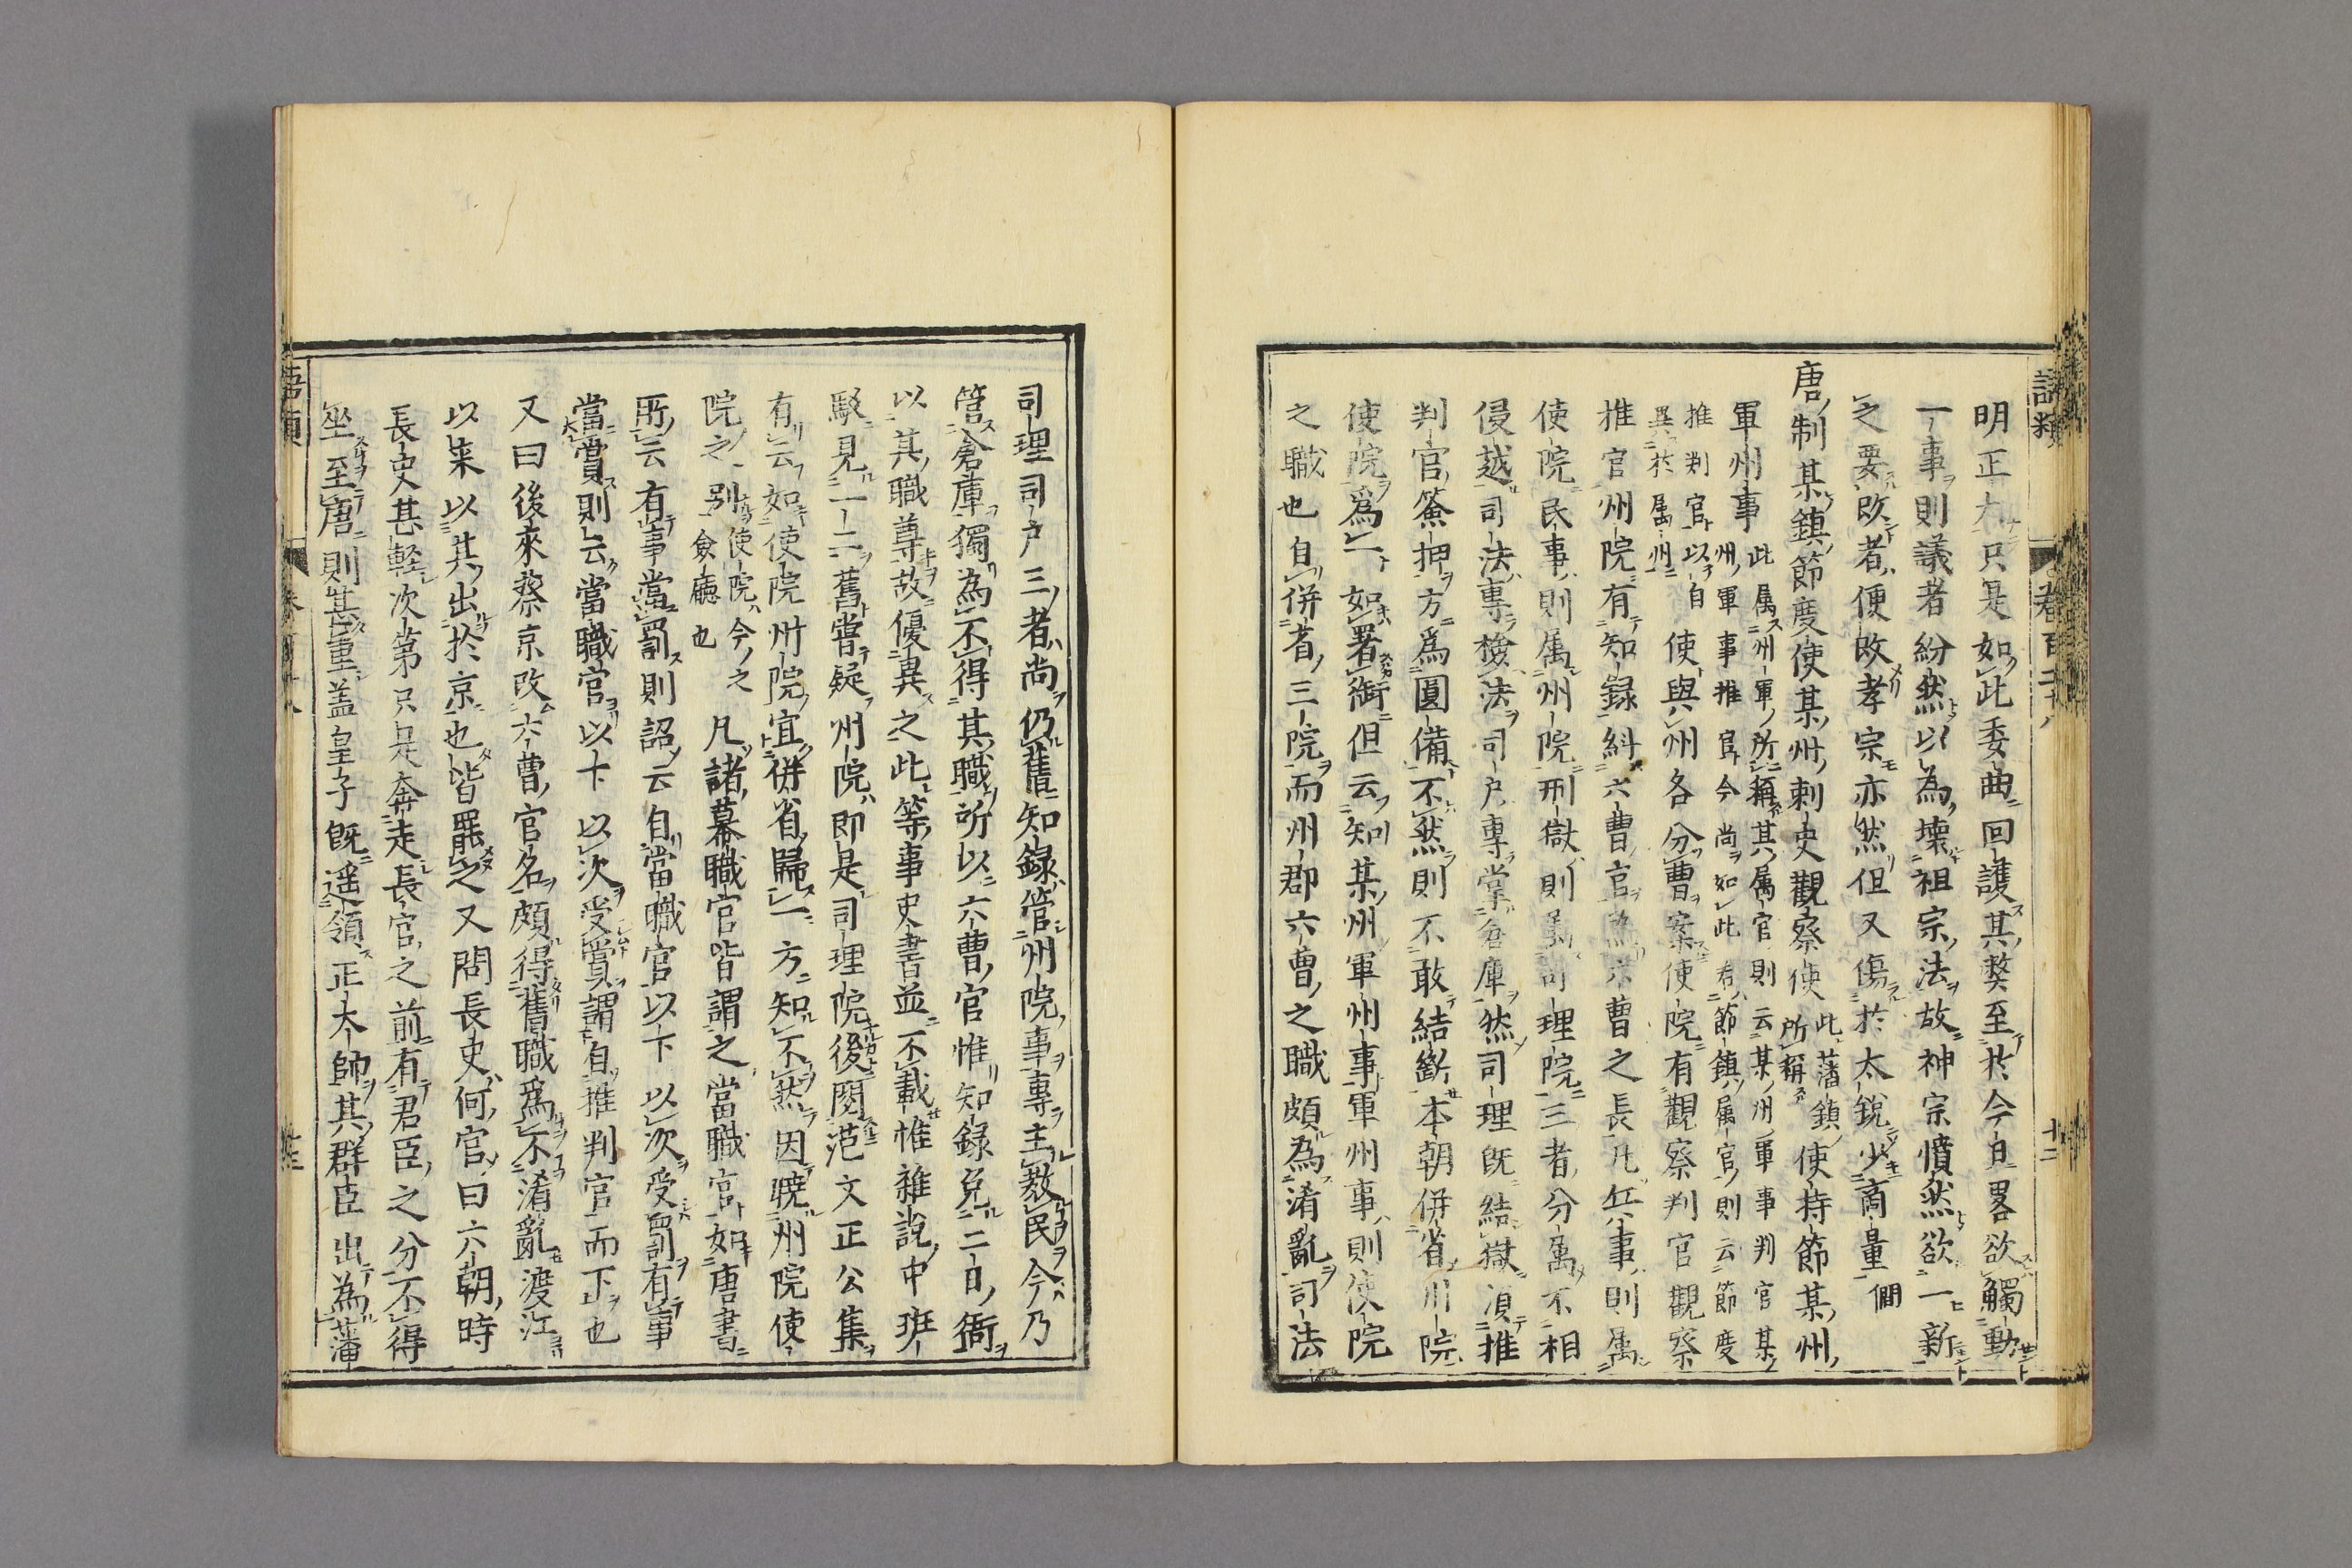 語類 卷百二十八 十二
明正大只是如此委曲回護其獘至於今日畧欲觸動
一事則議者紛然以為壊祖宗法故神宗憤然欲一新
之要改者便改孝宗亦然但又傷於太銳少商量 僩
唐制某鎮節度使某州刺史觀察使 此藩鎮所稱 使持節某州
軍州事 此属州軍所稱其属官則云某州軍事判官某州軍事推官今尚如此若節鎮属官則云節度推判官以自異於属州 使與州各分曹案使院有觀察判官觀察
推官州院有知録糾六曹官為六曹之長凡兵事則属
使院民事則属州院刑獄則属司理院三者分属不相
侵越司法專檢法司戸專掌倉庫然司理既結獄湏推
判官簽押方爲圓備不然則不敢結斷本朝併省州院
使院爲一如署銜但云知某州軍州事軍州事則使院
之職也自併省三院而州郡六曹之職頗為淆亂司法
司理司戸三者尚仍舊知録管州院事專主教民今乃
管倉庫獨為不得其職所以六曹官惟知録免二日衙
以其職尊故優異之此等事史書並不載惟雜說中班
駁見一二舊嘗疑州院即是司理院後閱范文正公集
有云如使院州院宜併省歸一方知不然因曉州院使
院之別 使院今之僉廳也 凡諸幕職官皆謂之當職官如唐書
所云有事當罰則詔云自當職官以下以次受罰有事
當賞則云當職官以下以次受賞謂自推判官而下也
又曰後來蔡京改六曹官名頗得舊職爲不淆亂渡江
以来以其出於京也皆罷之又問長史何官曰六朝時
長史甚軽次第只是奔走長官之前有君臣之分不得
坐至唐則甚重盖皇子既遥領正大帥其群臣出為藩